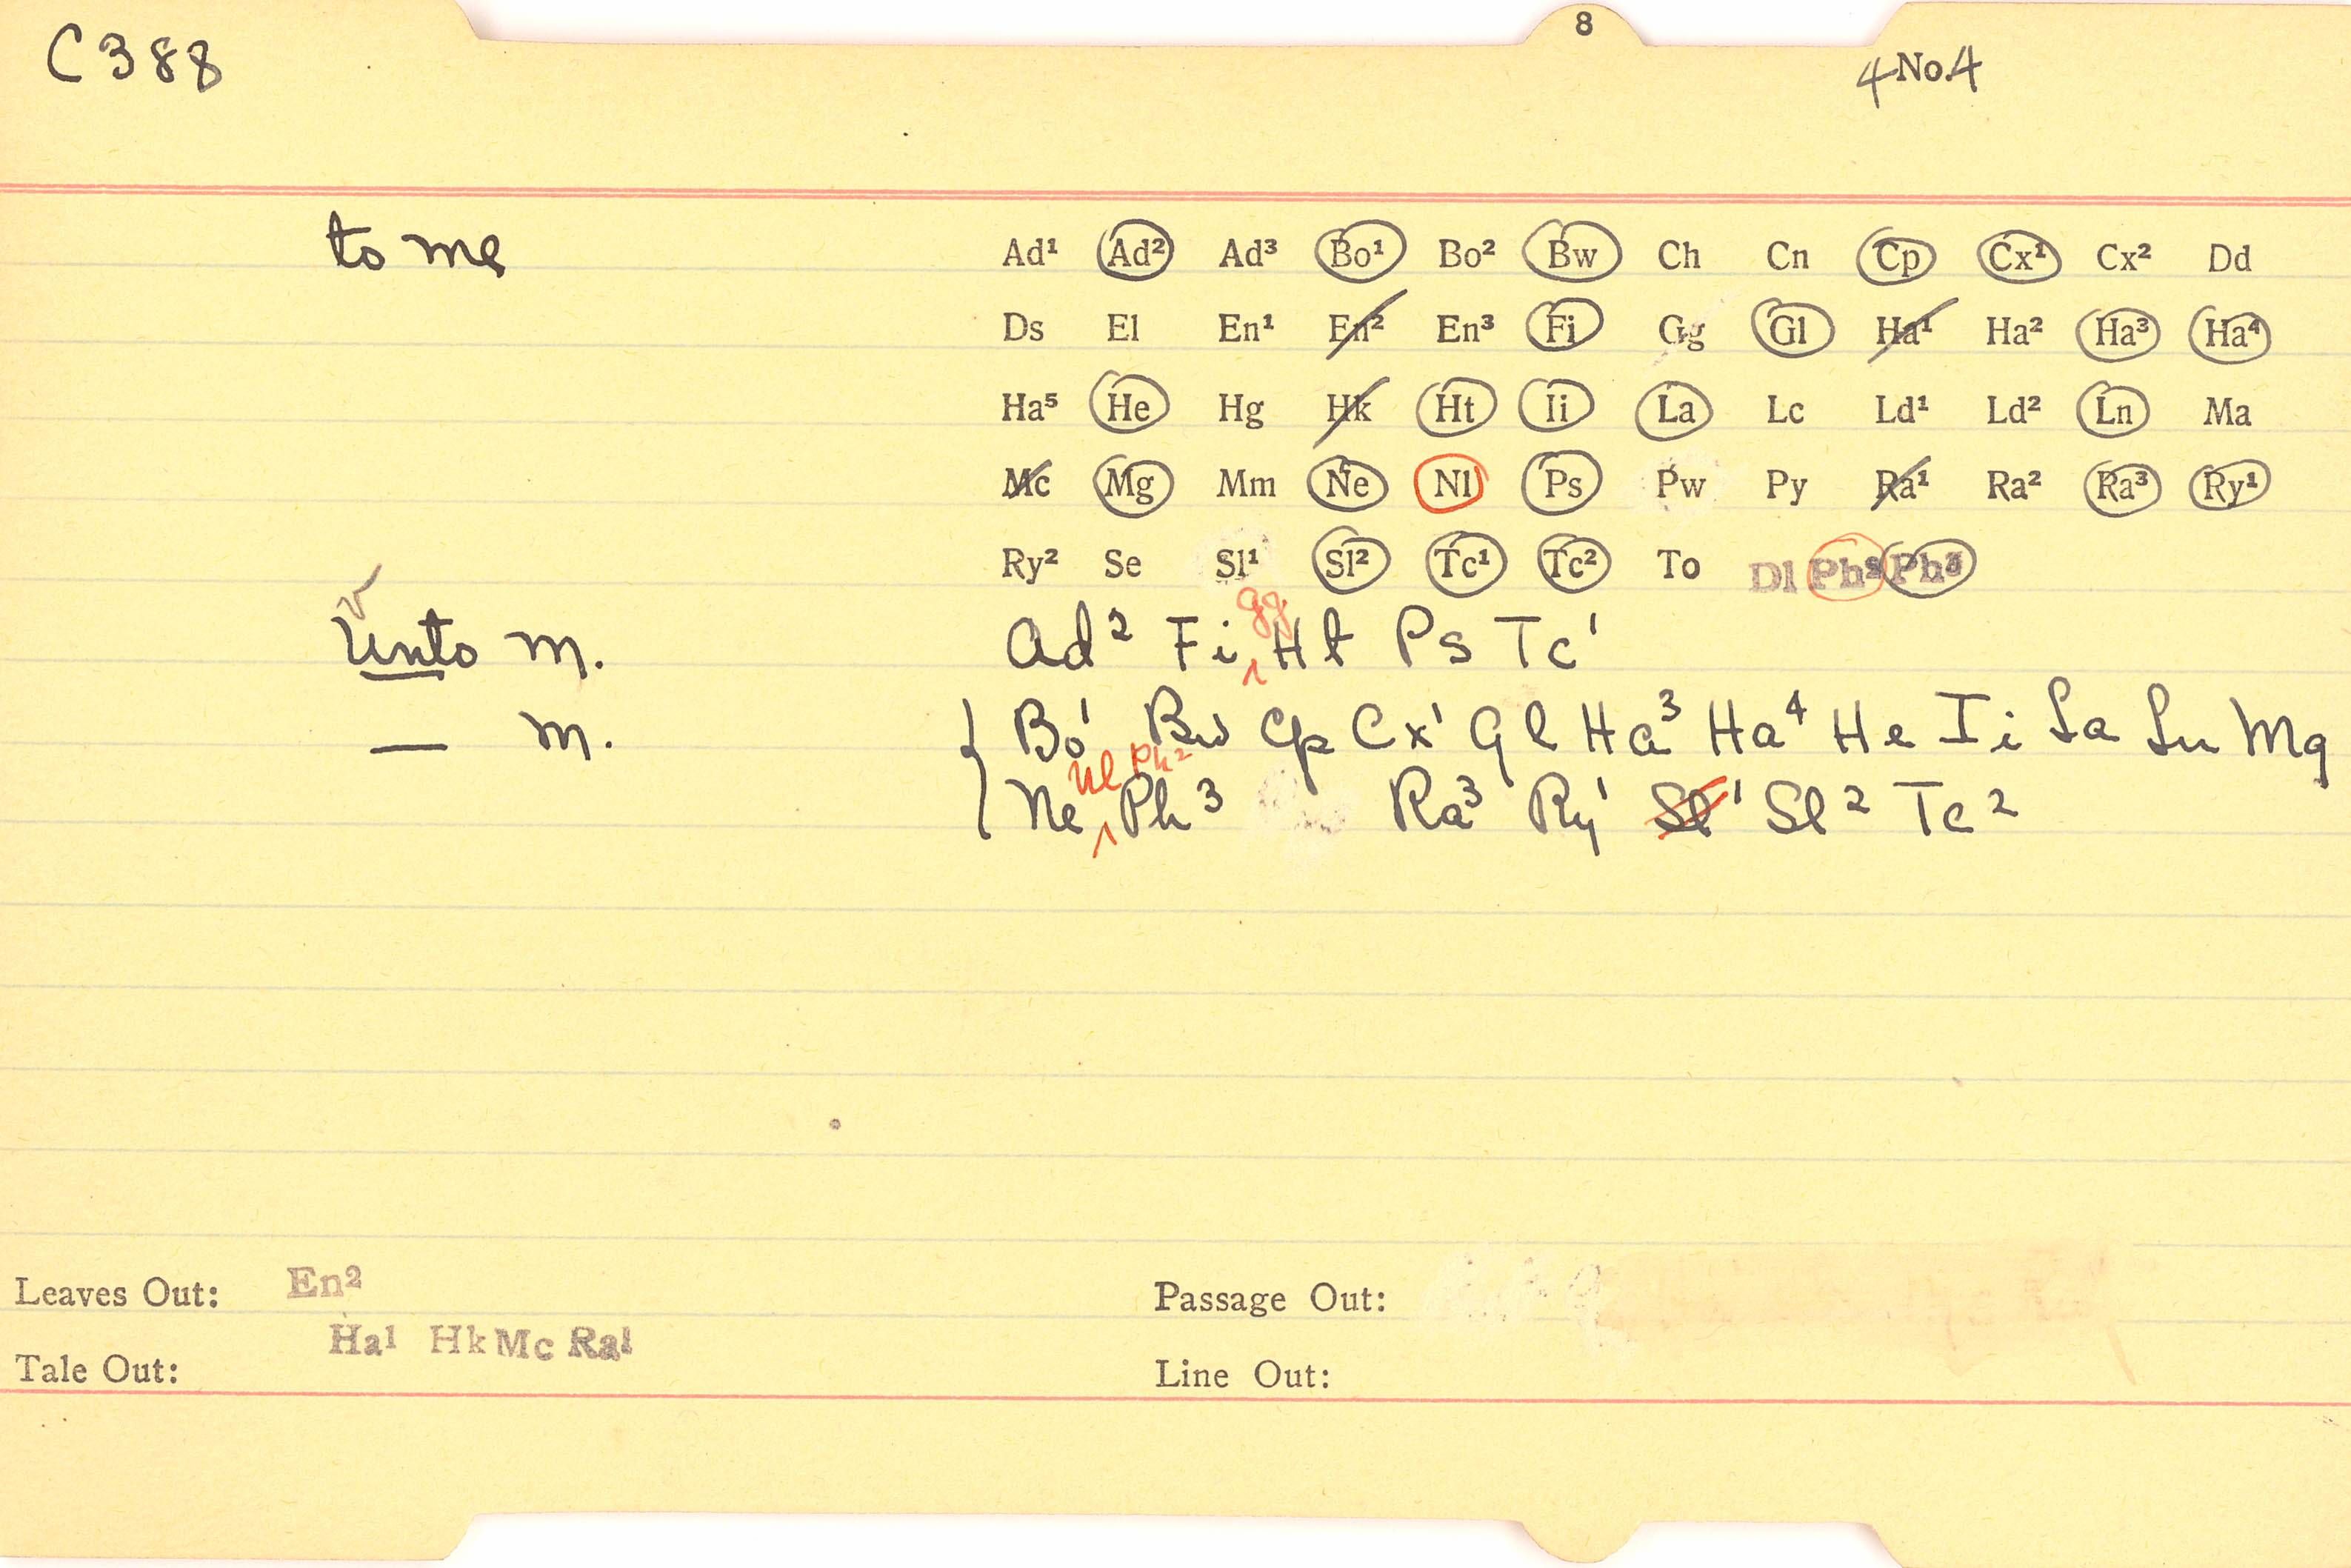 8
C388
4 No.4
to me Ad¹ Ad² Ad³ Bo¹ Bo² Bw Ch Cn Cp Cx¹ Cx² Dd
Ds El En¹ En² En³ Fi Gg Gl Ha¹ Ha² Ha³ Ha⁴
Ha⁵ He Hg Hk Ht Ii La Lc Ld¹ Ld² Ln Ma
Mc Mg Mm Ne Nl Ps Pw Py Ra¹ Ra² Ra³ Ry¹
Ry² Se Sl¹ Sl² Tc¹ Tc² To Dl Ph² Ph³
Gg
Unto m. Ad² Fi Ht Ps Tc¹
— m. Bo¹ Bw Cp Cx¹ Gl Ha³ Ha⁴ He Ii La Ln Mg
Nl Ph²
Ne Ph³ Ra³ Ry¹ Sl¹ Sl² Tc²
Leaves Out: En² Passage Out:
Ha¹ Hk Mc Ra¹
Tale Out: Line Out: